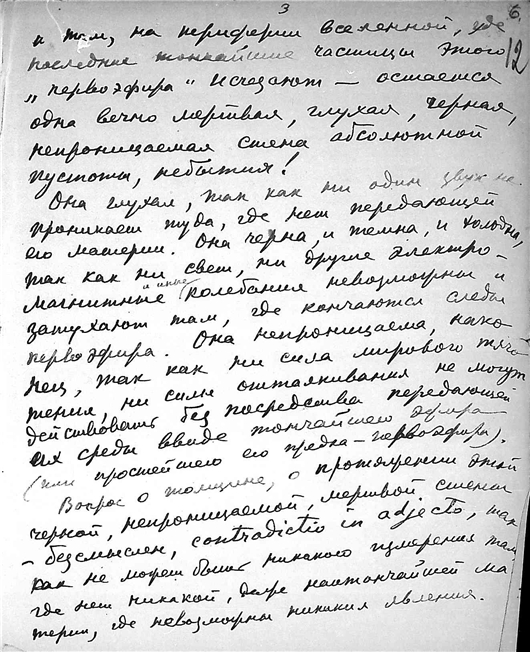 3
6
12
и там, на периферии вселенной, где
последние тончайшие частицы этого
„первоэфира“ исчезают — остается
одна вечно мертвая, глухая, черная,
непроницаемая стена абсолютной
пустоты, небытия!
Она глухая, так как ни один звук не
проникает туда, где нет передающей
его материи. Она черна, и темна, и холодна,
так как ни свет, ни другие электро-
магнитные и иные колебания невозможны и
затухают там, где кончаются следы
первоэфира. Она непроницаема, нако-
нец, так как ни сила мирового тяго-
тения, ни силы отталкивания не могут
действовать без посредства передающей
их среды ввиде тончайшего эфира
(или простейшего его предка — первоэфира).
Вопрос о толщине, о протяжении этой
черной, непроницаемой, мертвой стены
— безсмыслен, contradictio in adjecto, так
как не может быть никакого измерения там,
где нет никакой, даже наитончайшей ма-
терии, где невозможны никакия явления.